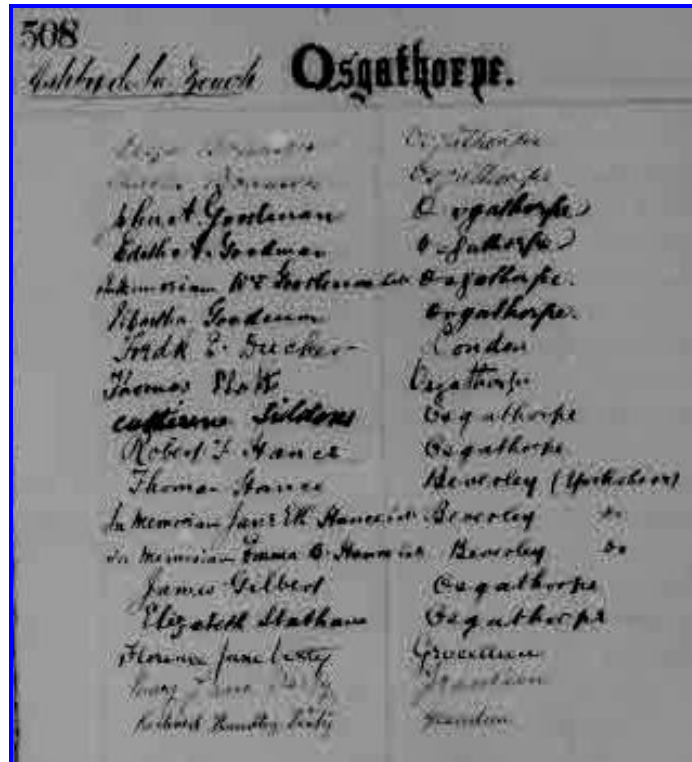 508
Ashby de la Zouch Osgathorpe.
Osgathorpe
Osgathorpe
John A Goodman Osgathorpe
Edith A. Goodman Osgathorpe
In memoriam Wm Goodman Osgathorpe.
Martha Goodman Osgathorpe.
Fredk E. Ducker London
Thomas Osgathorpe
Catherine Siddons Osgathorpe
Robert F Hance Osgathorpe
Thomas Hance Beverley (Yorkshire)
In Memoriam Jane Elth Hance Beverley do
In Memoriam Emma Hance Beverley do
James Gilbert Osgathorpe
Elizabeth Statham Osgathorpe
Florence Jane
Jane
Richard